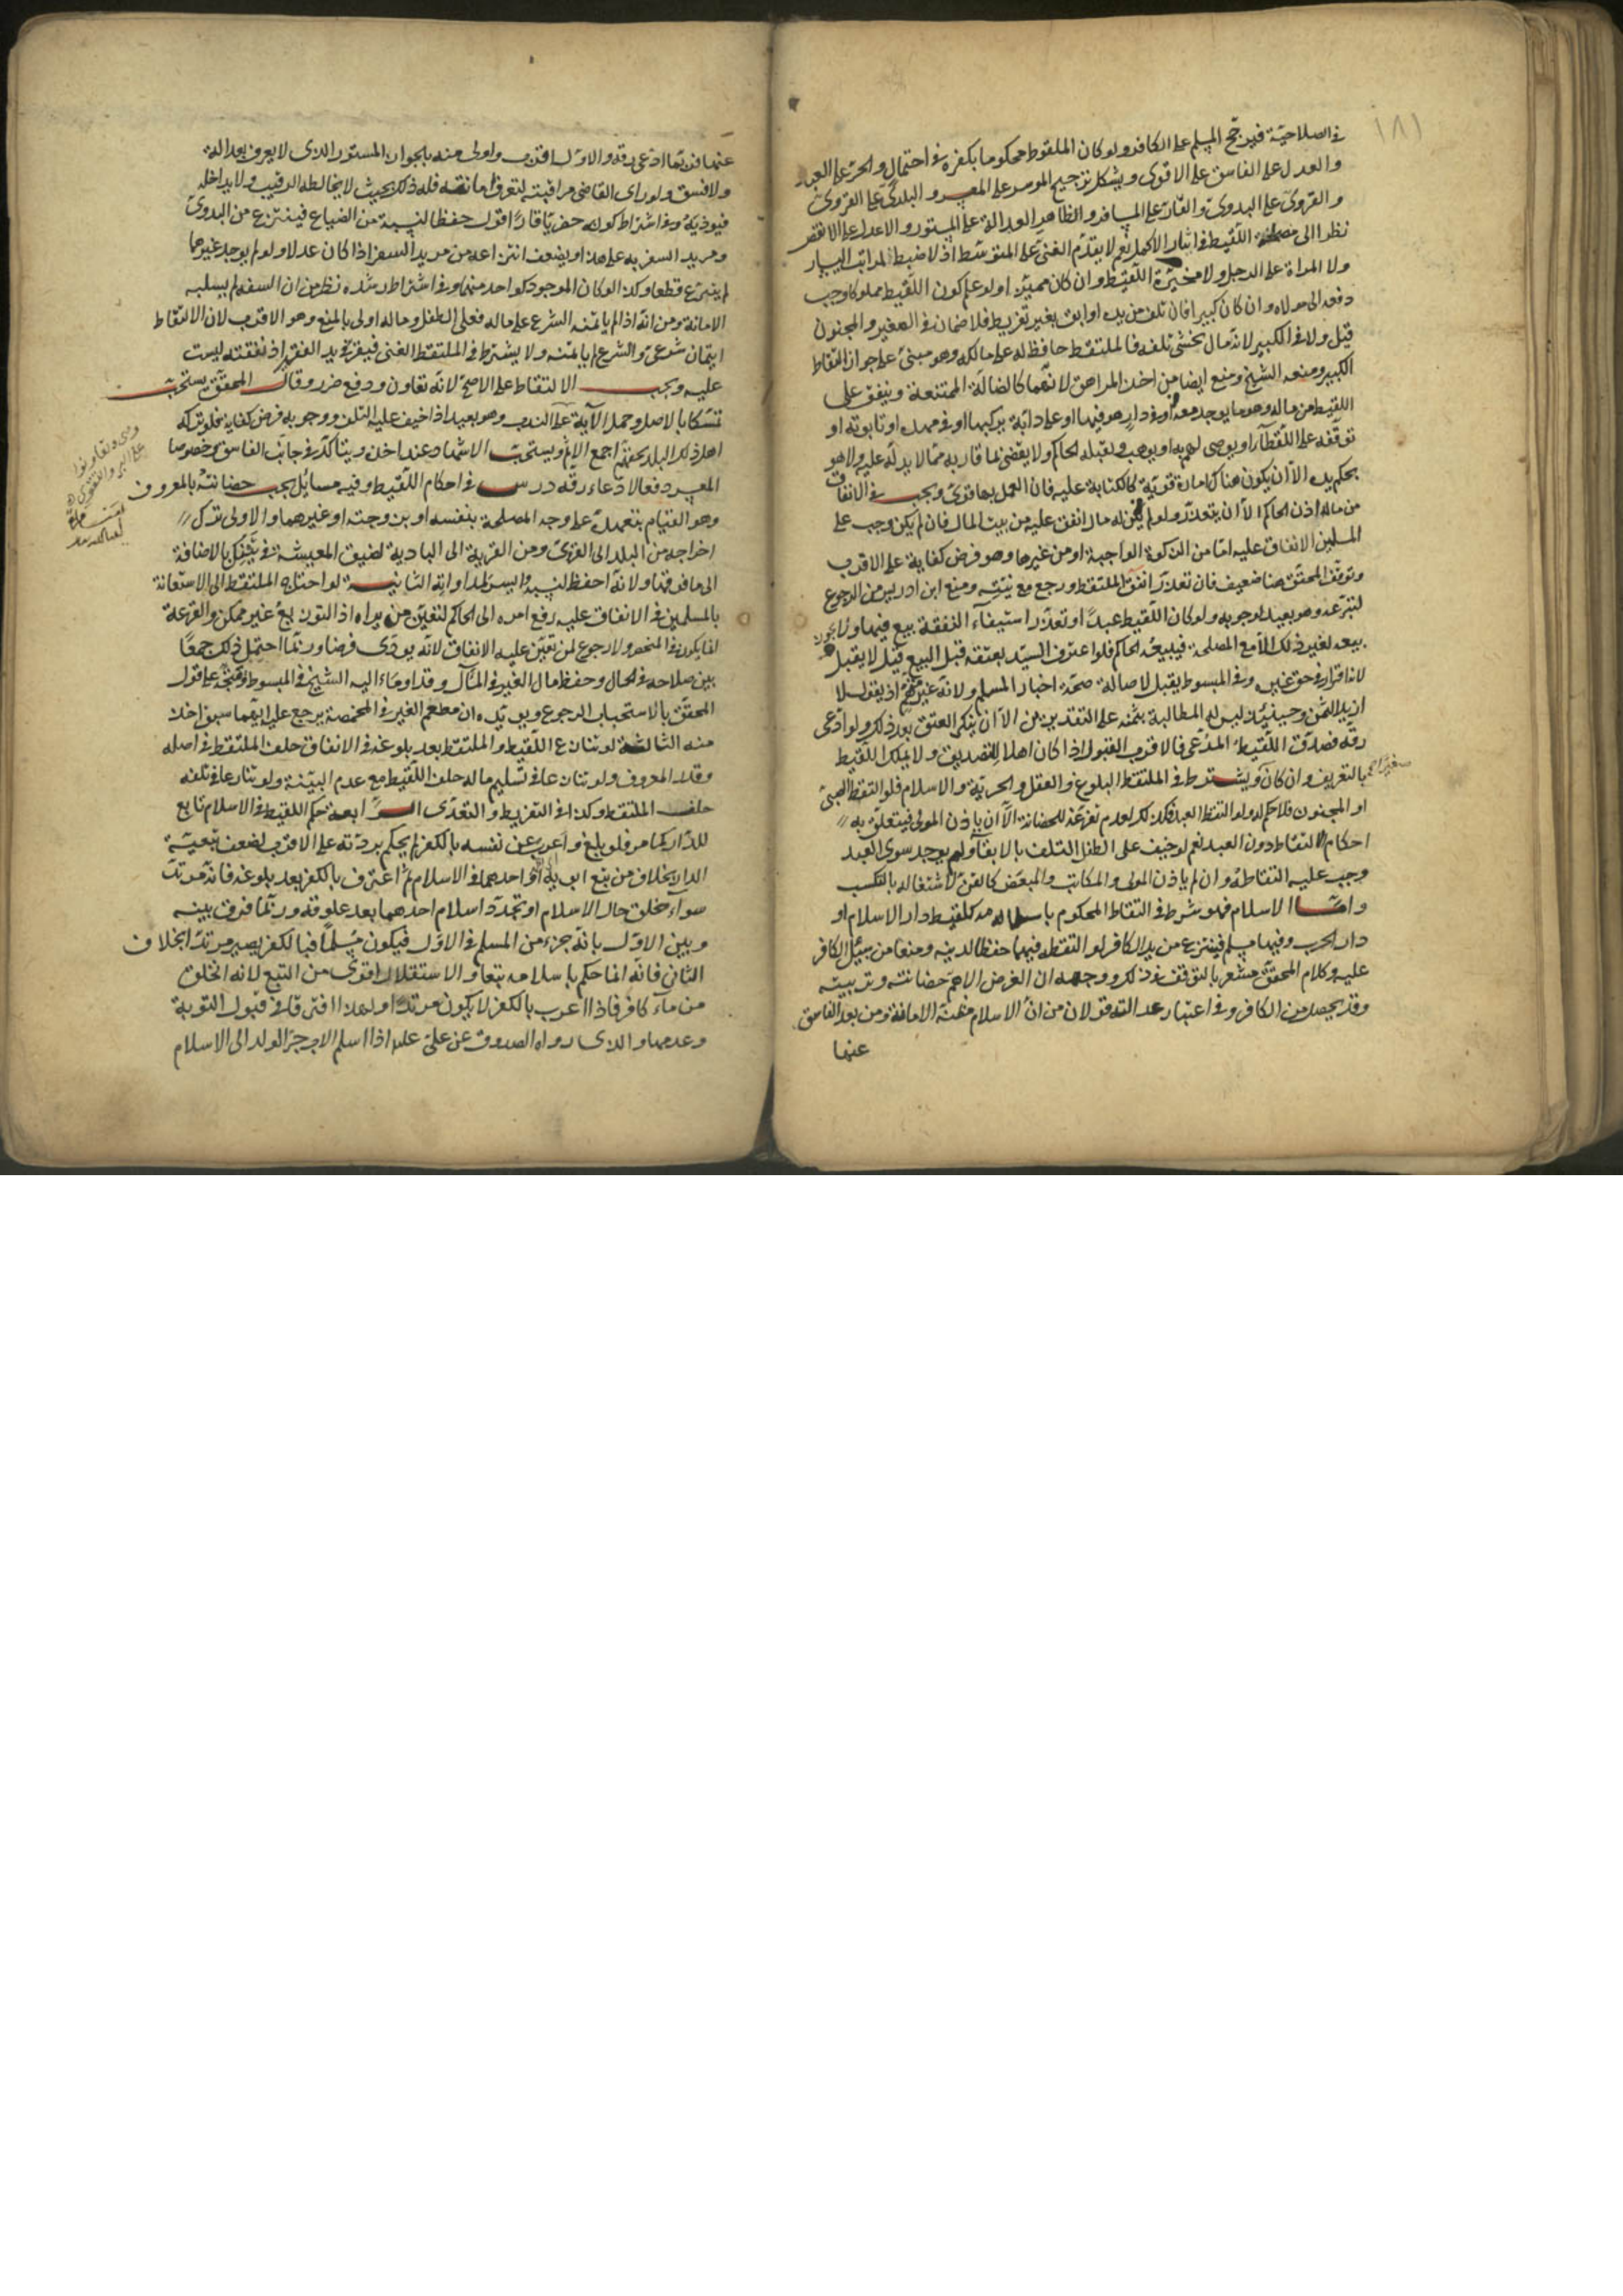 ١٨١
في الصلاحية فيرجح المسلم على الكافر ولو كان الملقوط محكوما بكفره في احتمال والحر على العبد
والعدل على الفاسق على الاقوى ويشكل ترجيح الموسر على المعسر والبلدي على القروي
والقروي على البدوي والقار على المسافر والظاهر العدالة على المستور والاعدل على الانقص
نظرا الى مصلحة اللقيط في ايثار الاكمل نعم لا يقدم الغني على المتوسط اذ لا ضبط لمراتب اليسار
ولا المراة على الرجل ولا مخيرة اللقيط وان كان مميزا ولو علم كون اللقيط مملوكا وجب
دفعه الى مولاه وان كان كبيرا فان تلف من يده او ابق بغير تفريط فلا ضمان في الصغير والمجنون
قيل ولا في الكبير لانه مال يخشى تلفه فالملتقط حافظ له على مالكه وهو مبني على جواز التقاط
الكبير ومنعه الشيخ ومنع ايضا من اخذ المراهق لانهما كالضالة الممتنعة وينفق على
اللقيط من ماله وهو ما يوجد معه او في دار هو فيها او على دابة يركبها او في مهده او تابوته او
توقفه على اللقطاء او يوصى لهم به او يوهب ويقبله الحاكم ولا يقضى بما قاربه مما لا يد له عليه ولا هو
بحكم يده الا ان يكون هناك امارة قوية كالكتابة عليه فان العمل بها قوي ويجب في الانفاق
من ماله اذن الحاكم الا ان يتعذر ولو لم يكن له مال انفق عليه من بيت المال فان لم يكن وجب على
المسلمين الانفاق عليه اما من الزكوة الواجبة او من غيرها وهو فرض كفاية على الاقرب
وتوقف المحقق هنا ضعيف فان تعذر انفق الملتقط ورجع مع نيته ومنع ابن ادريس من الرجوع
لتبرعه وهو بعيد لوجوبه ولو كان اللقيط عبدا وتعذر استيفاء النفقة بيع فيها ولا يجوز
بيعه لغير ذلك الا مع المصلحة فيبيعه الحاكم فلو اعترف السيد بعتقه قبل البيع قيل لا يقبل
لانه اقرار في حق غيره وفي المبسوط يقبل لاصالة صحة اخبار المسلم ولانه غير متهم اذ يقول لا
اريد الثمن وحينئذ ليس له المطالبة بثمنه على التقديرين الا ان ينكر العتق بعد ذلك ولو ادعى
رقه فصدق اللقيط المدعي فالاقرب القبول اذا كان اهلا للتصديق ولا يملك اللقيط
بالتعريف وان كان صغيرا ويشترط في الملتقط البلوغ والعقل والحرية والاسلام فلو التقط الصبي
او المجنون فلا حكم له ولو التقط العبد فكذلك لعدم تفرغه للحضانة الا ان ياذن المولى فيتعلق به
احكام الالتقاط دون العبد نعم لو خيف على الطفل التلف بالابقاء ولم يوجد سوى العبد
وجب عليه التقاطه وان لم ياذن المولى والمكاتب والمبعض كالقن لاشتغاله بالتكسب
واما الاسلام فهو شرط في التقاط المحكوم باسلامه كلقيط دار الاسلام او
دار الحرب وفيها مسلم فينتزع من يد الكافر لو التقطه فيهما حفظا لدينه ومنعا من سبيل الكافر
عليه وكلام المحقق مشعر بالتوقف في ذلك ووجهه ان الغرض الاهم حضانته وتربيته
وقد يحصل من الكافر وفي اعتبار عدالته قولان من ان الاسلام مظنة الامانة ومن بعد الفاسق
عنها
عنها فربما ادعى رقه والاول اقرب واولى منه بالجواز المستور الذي لا يعرف بعدالة
ولا فسق ولو راى القاضي مراقبته لتعرف امانته فله ذلك بحيث لا يخالطه الرقيب ولا يداخله
فيوذيه وفي اشتراط كونه حضريا قارا قول حفظا لنسبه من الضياع فينتزع من البدوي
ومريد السفر به على هذا ويضعف انتزاعه من مريد السفر اذا كان عدلا ولو لم يوجد غيرهما
لم ينتزع قطعا وكذا لو كان الموجود كواحد منهما وفي اشتراط رشده نظر من ان السفه لم يسلبه
الامانة ومن انه اذا لم ياتمنه الشرع على ماله فعلى الطفل وماله اولى بالمنع وهو الاقرب لان الالتقاط
ايتمان شرعي والشرع لم ياتمنه ولا يشترط في الملتقط الغنى فيقر في يد الفقير اذ نفقته ليست
عليه ويجب الالتقاط على الاصح لانه تعاون ودفع ضرر وقال المحقق يستحب
تمسكا بالاصل وحمل الآية على الندب وهو بعيد اذا خيف عليه التلف ووجوبه فرض كفاية فلو تركه
اهل ذلك البلد بحقيهم اجمع الاثم ويستحب الاشهاد عند اخذه ويتاكد في جانب الفاسق وخصوصا
المعسر دفعا لادعاء رقه درس في احكام اللقيط وفيه مسائل يجب حضانته بالمعروف
وهو القيام بتعهده على وجه المصلحة بنفسه او بزوجته او غيرهما والاولى ترك
اخراجه من البلد الى القرى ومن القرية الى البادية لضيق المعيشة في تينك بالاضافة
الى ما فوقها ولانه احفظ لنسبه وايسر لمداواته الثانية لو احتاج الملتقط الى الاستعانة
بالمسلمين في الانفاق عليه رفع امره الى الحاكم لتعيين من يراه اذ التوزيع غير ممكن والقرعة
انما يكون في المنحصر ولا رجوع لمن تعين عليه الانفاق لانه يودي فرضا وربما احتمل ذلك جمعا
بين صلاحه في الحال وحفظ مال الغير في المآل وقد اوماء اليه الشيخ في المبسوط
المحقق بالاستحباب الرجوع ويويده ان مطعم الغير في المخمصة يرجع عليه
منه الثالثة لو تنازع اللقيط والملتقط بعد بلوغه في الانفاق حلف الملتقط في اصله
وقدر المعروف ولو تنازعا في تسليم ماله حلف اللقيط مع عدم البينة ولو تنازعا في تلفه
حلف الملتقط وكذا في التفريط والتعدي الرابعة حكم اللقيط في الاسلام تابع
للدار كما مر فلو بلغ واعرب عن نفسه بالكفر لم يحكم بردته على الاقرب لضعف تبعية
الدار بخلاف من تبع ابويه او احدهما في الاسلام ثم اعترف بالكفر بعد بلوغه فانه مرتد
سواء خلق حال الاسلام او تجدد اسلام احدهما بعد علوقه وربما فرق بينه
وبين الاول بانه جزء من المسلم في الاول فيكون مسلما فبالكفر يصير مرتدا بخلاف
الثاني فانه انما حكم باسلامه تبعا والاستقلال اقوى من التبع لانه انخلق
من ماء كافر فاذا اعرب بالكفر لا يكون مرتدا ولهذا افترقا في قبول التوبة
وعدمها والذي رواه الصدوق عن علي عليه اذا اسلم الاب جر الولد الى الاسلام
وتعاونوا
على البر والتقوى